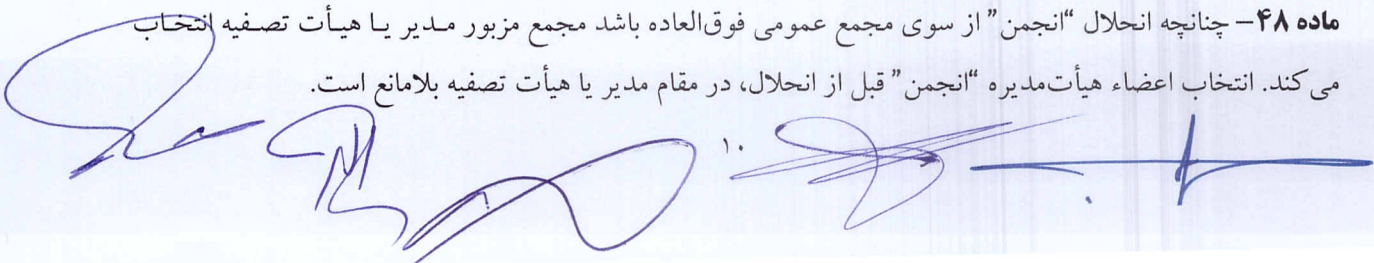 ماده ۴۸– چنانچه انحلال “انجمن” از سوی مجمع عمومی فوق‌العاده باشد مجمع مزبور مـدیر یـا هیـأت تصـفیه انتخـاب
می‌کند. انتخاب اعضاء هیأت‌مدیره “انجمن” قبل از انحلال، در مقام مدیر یا هیأت تصفیه بلامانع است.
۱۰